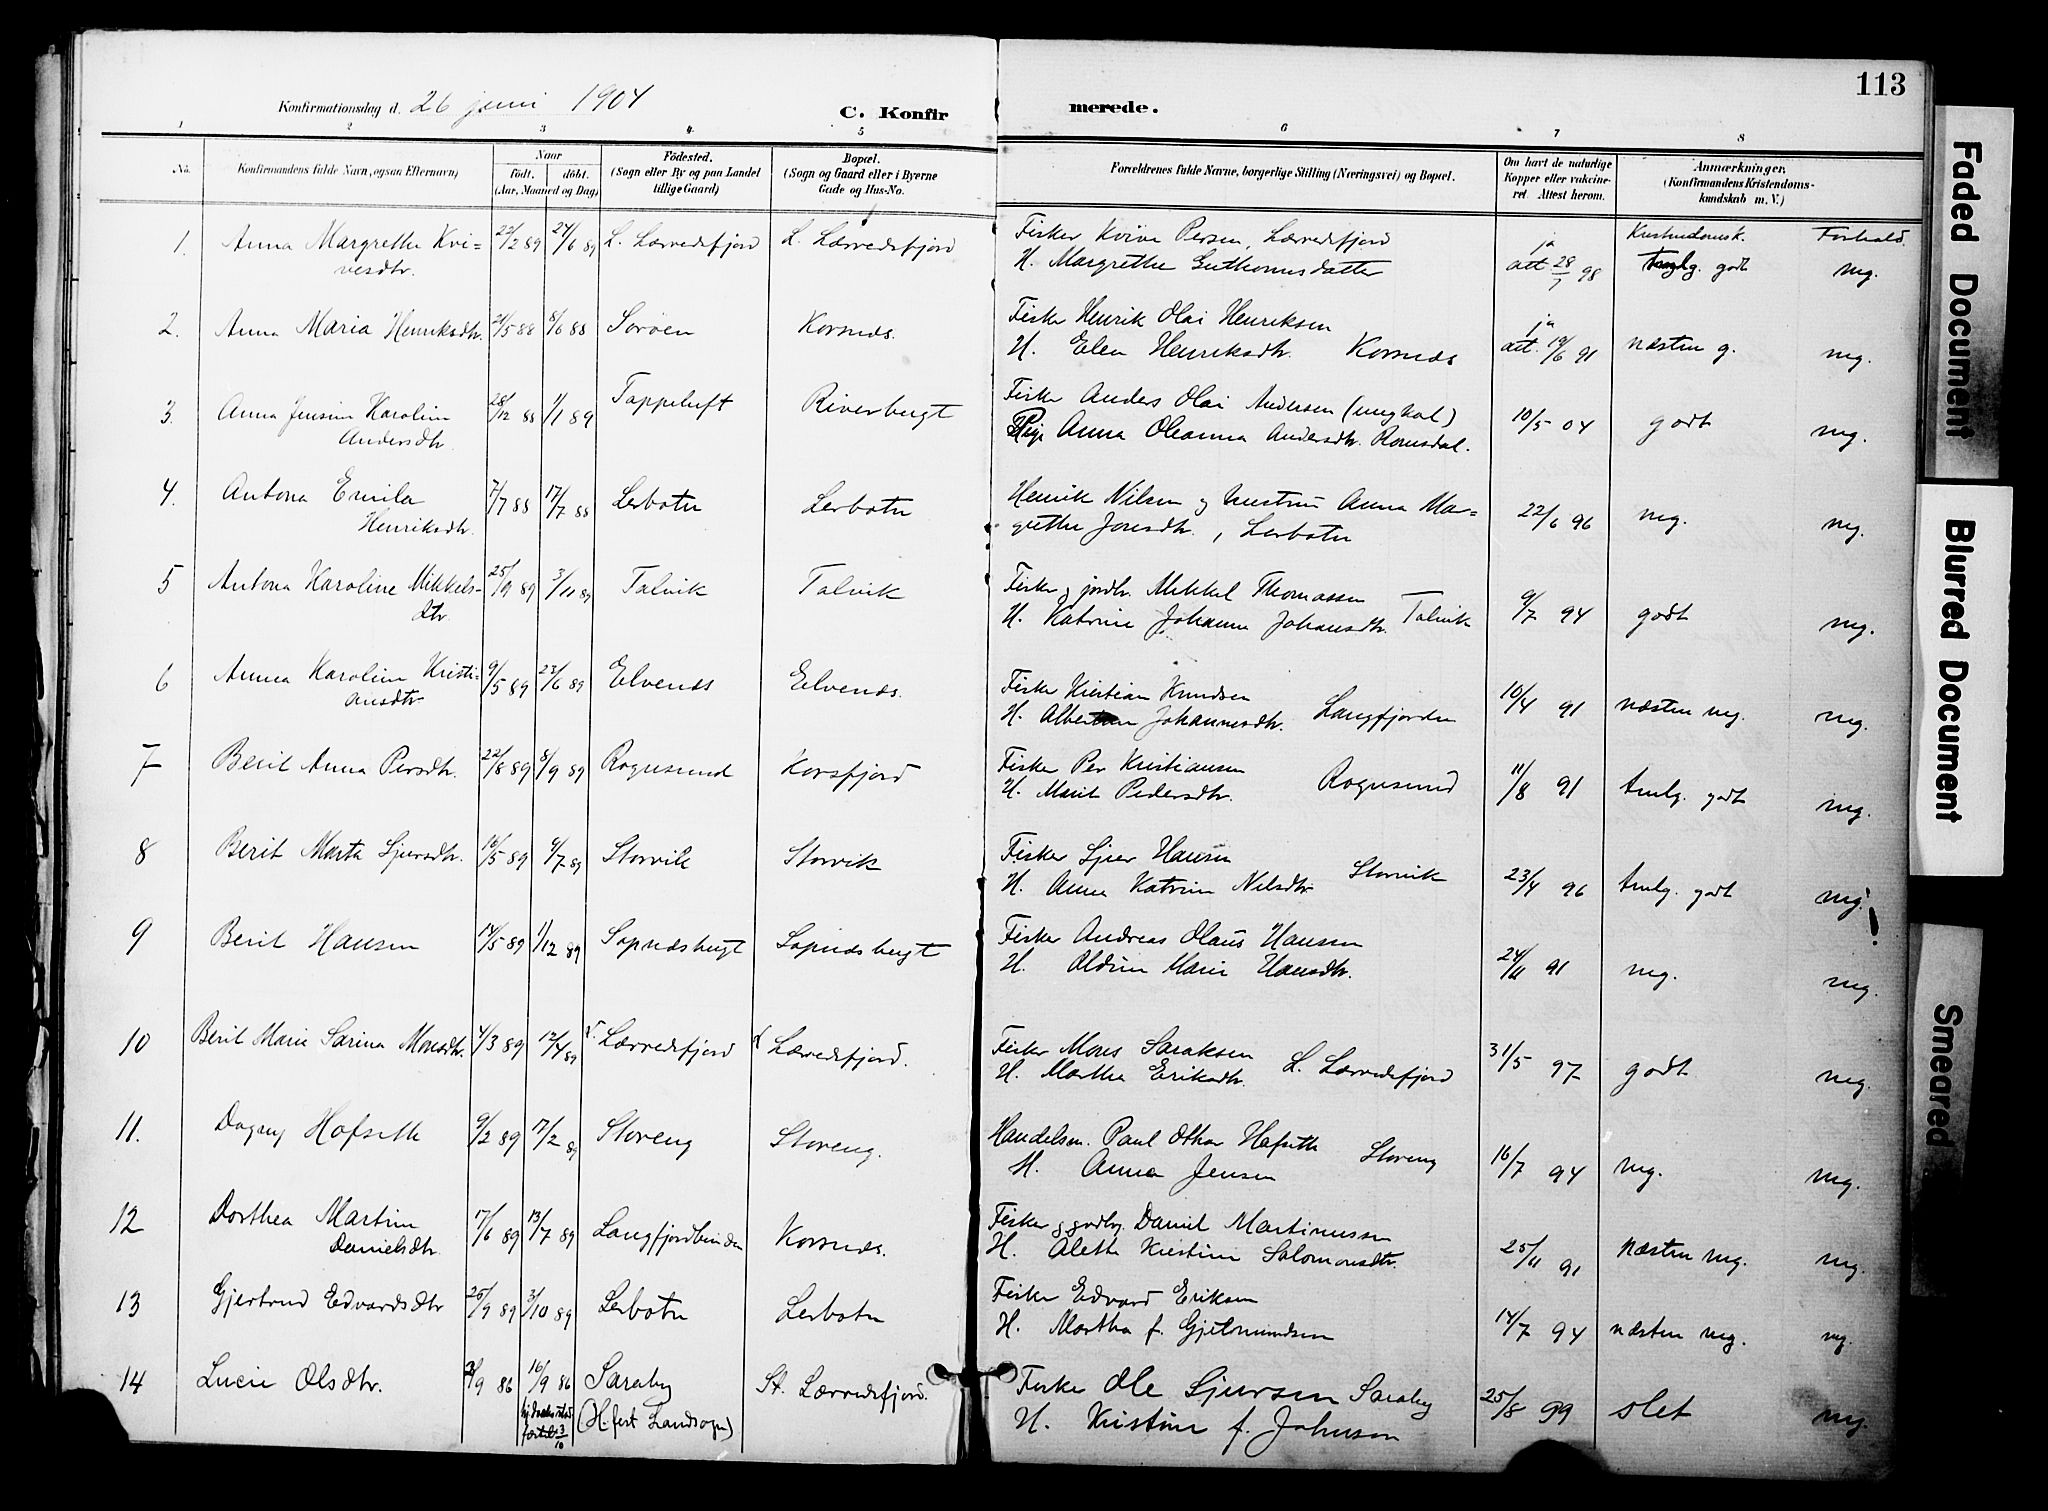 113
Konfirmationsdag d. 26 juni 1904
C. Konfirmerede.
1 2 3 4 5 6 7 8
No. Konfirmandens fulde Navn, ogsaa Efternavn) Naar født. døbt. (Aar, Maaned og Dag) Fødested. (Sogn eller By og paa Landet tillige Gaard) Bopæl. (Sogn og Gaard eller i Byerne Gade og Hus-No. Forældrenes fulde Navne, borgerlige Stilling (Næringsvei) og Bopæl. Om havt de naturlige Kopper eller vakcineret. Attest herom. Anmærkninger. (Konfirmandens Kristendomskundskab m. V.)
Kristendomsk. Forhold.
1. Anna Margrethe Kvi- 22/2 89 24/6 89 L. Lærredsfjord L. Lærredsfjord Fisker Kvive Persen, Lærredsfjord ja
vesdtr. H. Margrethe Guttormsdatter att 28/7 98 godt mg.
2. Anna Maria Henriksdtr. 21/5 88 8/6 88 Sørøen Korsnes. Fisker Henrik Olai Henriksen ja
H. Elen Henriksdtr. Korsnes att. 19/6 91 næsten g. mg.
3. Anna Jensine Karoline 28/12 88 1/1 89 Tappeluft Riverbugt Fisker Anders Olai Andersen (ungkal)
Andersdtr. Pige Anna Oleanna Andersdtr. Romsdal. 10/5 04 godt mg.
4. Antona Emilie 7/7 88 17/7 88 Lerbotn Lerbotn Henrik Nilsen og hustru Anna Mar-
Henriksdtr. grethe Jonsdtr., Lerbotn 22/6 96 mg. mg.
5 Antona Karoline Mikkels- 25/9 89 3/11 89 Talvik Talvik Fisker g jordbr. Mikkel Thomassen
dtr. H. Katrine Johanna Johansdtr. Talvik 9/7 94 godt mg.
6 Anna Karoline Kristi- 9/5 89 23/6 89 Elvenes Elvenes. Fisker Kristian Knudsen
ansdtr H. Johannesdtr. Langfjorden 10/4 91 næsten mg. mg.
7 Berit Anna Persdtr. 22/8 89 8/9 89 Rognsund Korsfjord Fisker Per Kristiansen
H. Marit Pedersdtr. Rognsund 11/8 91 tmlg. godt mg.
8 Berit Marta Sjursdtr. 16/5 89 9/7 89 Storvik Storvik Fisker Sjur Hansen
H. Anna Katrine Nilsdtr Storvik 23/4 96 tmlg. godt mg.
9 Berit Hansen 14/5 89 1/12 89 Sopnesbugt Sopnesbugt Fisker Andreas Olaus Hansen
H. Oldine Marie Hansdtr. 24/11 91 mg. mg.
10 Berit Marie Sarina Monsdtr. 4/3 89 12/4 89 Lærredsfjord Lærredsfjord. Fisker Mons Saraksen
H. Martha Eriksdtr. L. Lærredsfjord 31/5 97 godt mg.
11. Dagny Hofseth 9/2 89 17/2 89 Storeng Storeng. Handelsm. Paul Othar Hofseth
H. Anna Jensen Storeng 16/7 94 mg. mg.
12 Dorthea Martine 17/6 89 13/7 89 Langfjordbunden Korsnes. Fisker g jordbr. Daniel Martinussen
Danielsdtr. H. Aleth Kristine Salomonsdtr. 25/11 91 næsten mg. mg.
13 Gjertrud Edvardsdtr 25/9 89 3/10 89 Lerbotn Lerbotn Fisker Edvard Eriksen
H. Martha f. Gjetmundsen 14/7 94 næsten mg. mg.
14 Lucie Olsdtr. 2/9 86 16/9 86 Saraby St. Lærredsfjord. Fisker Ole Sjursen Saraby
hjemmedøbt 3/10 (H.fest Landsogn) H. Kristine f. Johnsen 25/8 99 slet mg.
Faded Document
Blurred Document
Smeared